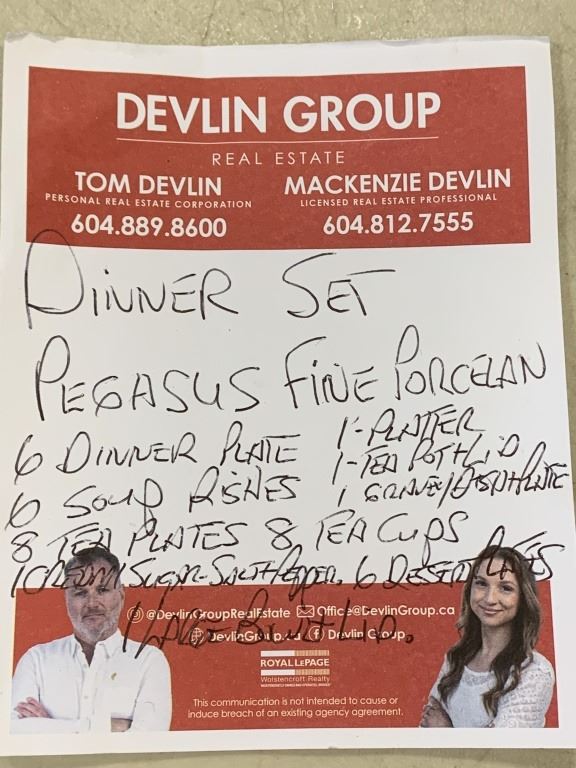 DEVLIN GROUP
REAL ESTATE
TOM DEVLIN MACKENZIE DEVLIN
PERSONAL REAL ESTATE CORPORATION LICENSED REAL ESTATE PROFESSIONAL
604.889.8600 604.812.7555
DINNER SET
PEGASUS FINE PORCELAN
6 DINNER PLATE 1-PLATTER
6 SOUP DISHES 1-TEA POT+LID
1 GRAVEY/DISH+PLATE
8 TEA PLATES 8 TEA CUPS
1 CREAM/SUGAR-SALT+PEPPER. 6 DESERT PLATES
@DevlinGroupRealEstate Office@DevlinGroup.ca
1 LARGE +LID.
DevlinGroup.ca Devlin Group
ROYAL LEPAGE
Wolstencroft Realty
INDEPENDENTLY OWNED AND OPERATED, BROKER
This communication is not intended to cause or
induce breach of an existing agency agreement.